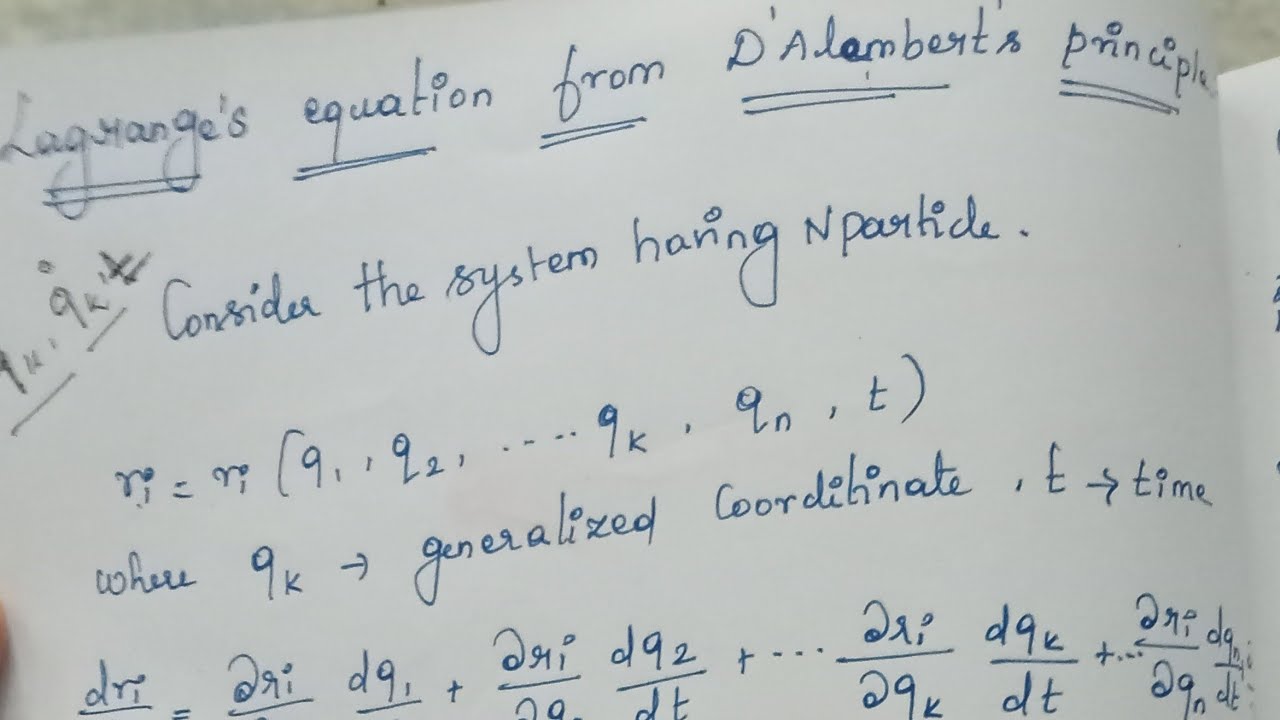 Lagrange's equation from D'Alembert's principle
q̇ₖ
qₖ,
Consider the system having N particle.
rᵢ = rᵢ (q₁, q₂, ..... qₖ, qₙ, t)
where qₖ → generalized Coorditinate, t → time
drᵢ/ = ∂rᵢ/ dq₁/ + ∂rᵢ/∂q dq₂/dt + ... ∂rᵢ/∂qₖ dqₖ/dt + ... ∂rᵢ/∂qₙ dqₙ/dt